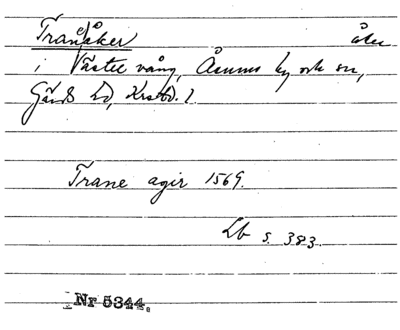 Tranåker åker
i Väster vång, Åsums by och sn,
Gärds hd, Krstd. l.
Trane agir 1569.
Lb s. 383
Nr 5344.